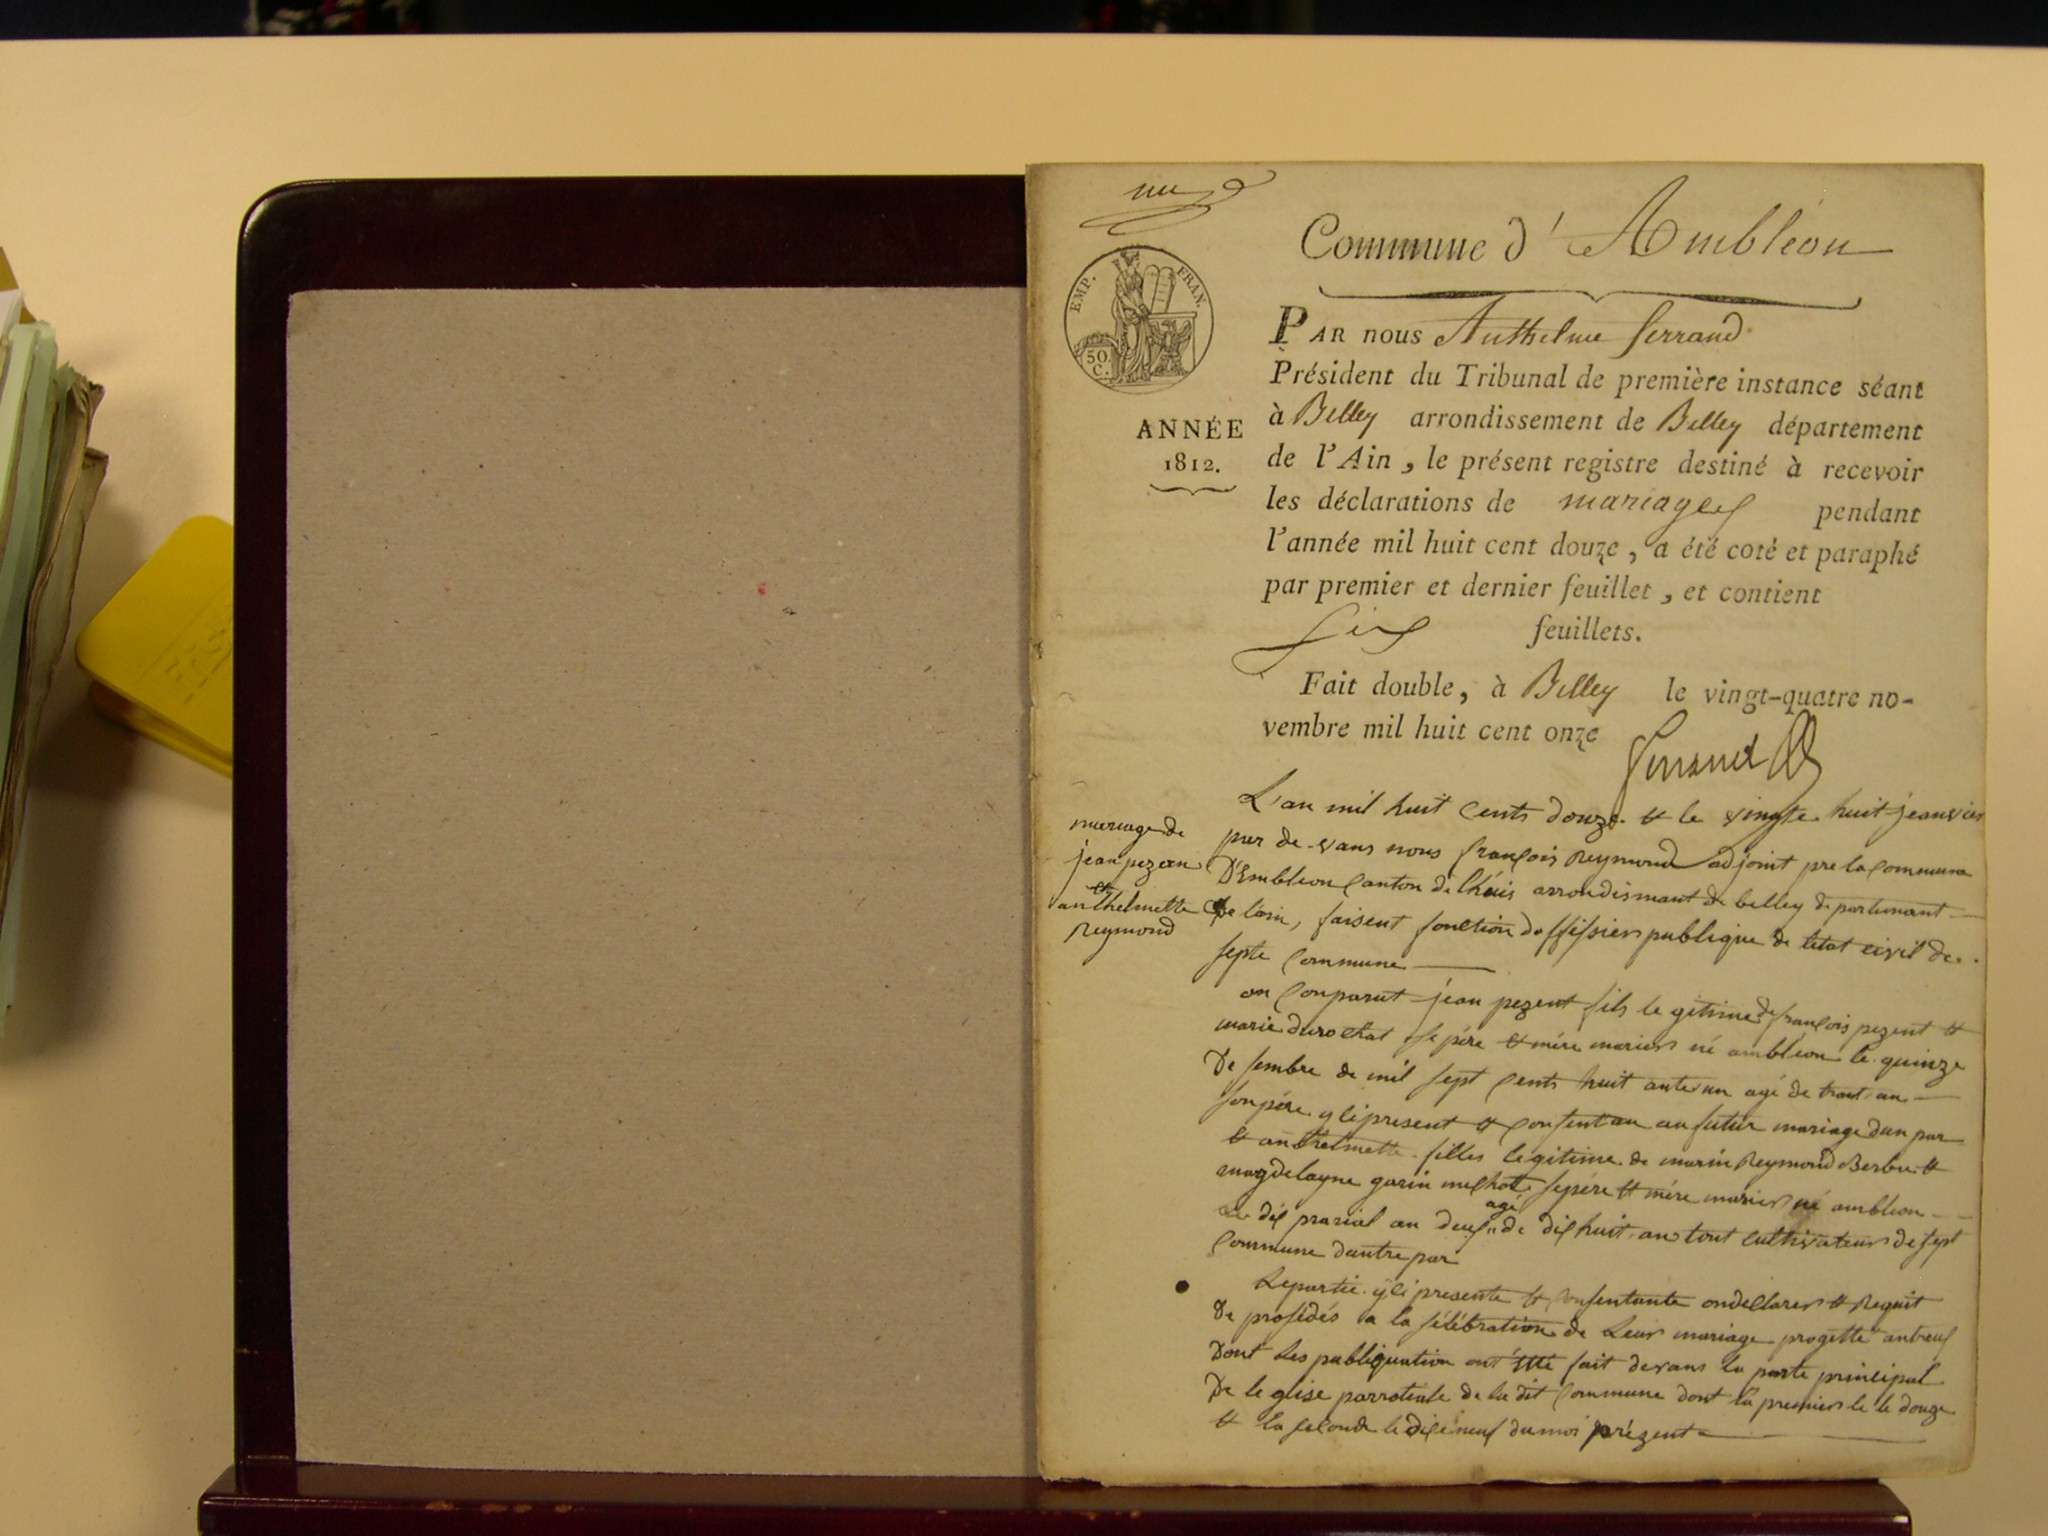 Commune d'Ambléon
EMP. FRAN.
50.
C.
PAR nous Anthelme ferrand
Président du Tribunal de première instance séant
à Belley arrondissement de Belley département
ANNÉE
1812.
de l'Ain, le présent registre destiné à recevoir
les déclarations de mariages pendant
l'année mil huit cent douze, a été coté et paraphé
par premier et dernier feuillet, et contient
six feuillets.
Fait double, à Belley le vingt-quatre no-
vembre mil huit cent onze
ferrand
mariage de
jean pezan
et
anthelmette
Reymond
L'an mil huit cents douze & le vingte huit jeanvier
par de-vans nous françois Reymond adjoint pre la commune
D'Embleon canton de lhuis arrondismant de belley departemant
De lain, faisent fonction doffisier publique de letat civil de
septe commune
on conparut jean pezent fils le gitime de françois pezent &
marie durochat se père & mére mariers né ambleon le quinze
De sembre de mil sept cents huit ante un agé de trant an
son pére y ci present & consentan au futur mariage dun par
& anthelmette filles legitime de marin Reymond Berbu &
magdelayne garin michat sepére & mére mariers né ambleon
le dix prarial an deux agé de dix huit an tout cultivateur de sept
commune dautre par
Lepartie y ci presente & consentante ondeclarer & Requit
De prosédés a la sélébration de Leur mariage progetté antreux
Dont Les publiquation ont étté fait devans la porte principal
De le glise parrotiale de la dit commune dont la premier le le douze
& la seconde le dix neuf du moi prézent